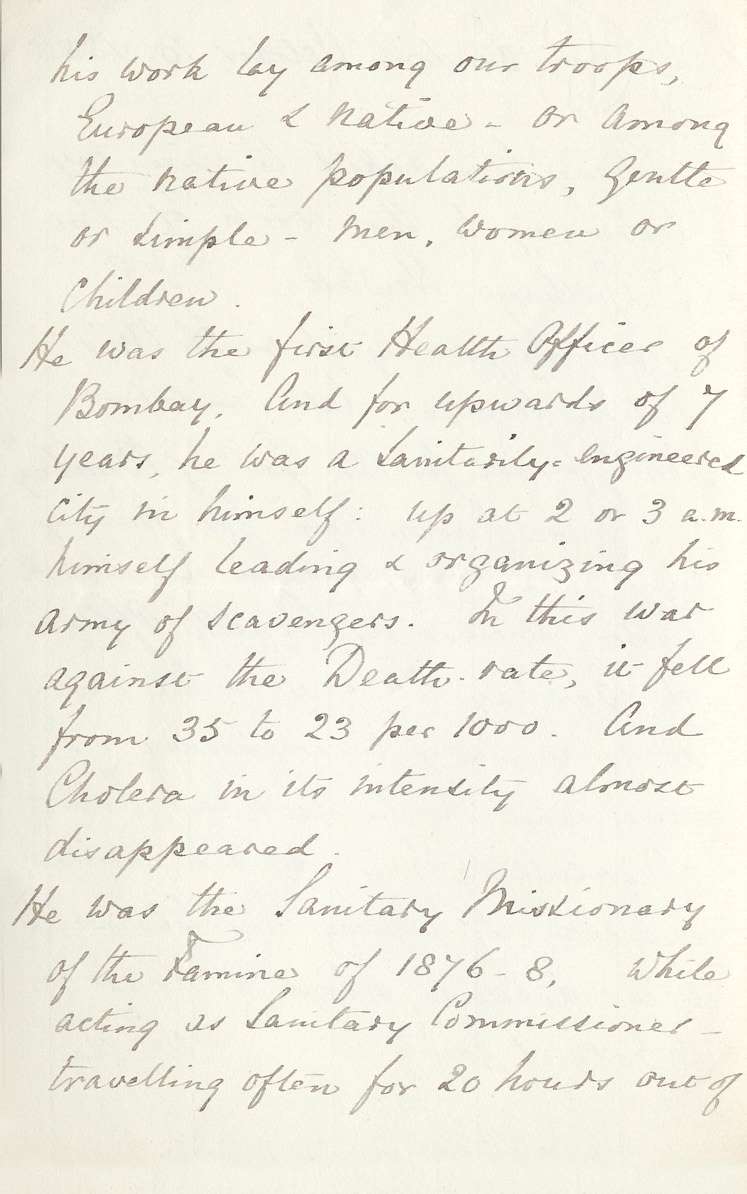 his work lay among our troops,
European & Native - or among
the native populations, gentle
or simple - men, women or
children.
He was the first Health Officer of
Bombay. And for upwards of 7
years, he was a Sanitarily-engineered
city in himself: up at 2 or 3 a.m.
himself leading & organizing his
army of scavengers. In this war
against the Death-rate, it fell
from 35 to 23 per 1000. And
Cholera in its intensity almost
disappeared.
He was the Sanitary Missionary
of the Famine of 1876-8, while
acting as Sanitary Commissioner -
travelling often for 20 hours out of